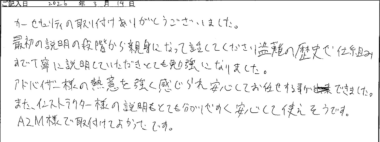 ご記入日 2026年3月14日
カーセキュリティの取り付けありがとうございました。
最初の説明の段階から親身になって話してくださり盗難の歴史や仕組み
まで丁寧に説明していただきとても勉強になりました。
アドバイザー様の熱意を強く感じられ安心してお任せする事が出来できました。
また、インストラクター様の説明もとても分かりやすく安心して使えそうです。
A2M様で取付けてよかったです。